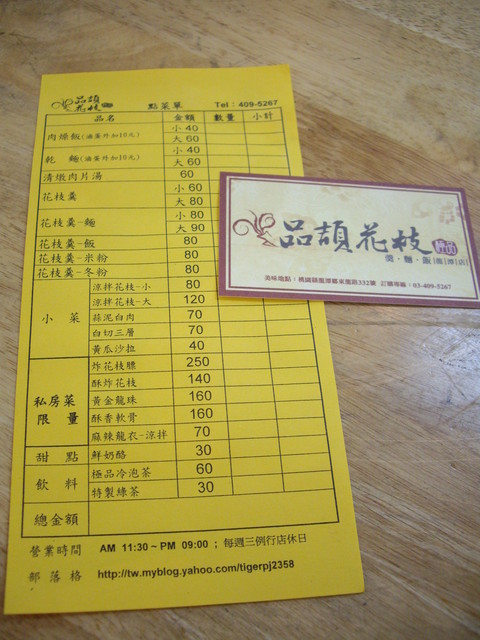 品頡花枝 點菜單 Tel：409-5267
品名 金額 數量 小計
肉燥飯(滷蛋外加10元) 小 40
大 60
乾 麵(滷蛋外加10元) 小 40
大 60
清燉肉片湯 60
花枝羹 小 60
大 80
花枝羹-麵 小 80
大 90
花枝羹-飯 80
花枝羹-米粉 80
花枝羹-冬粉 80
小 菜 涼拌花枝-小 80
涼拌花枝-大 120
蒜泥白肉 70
白切三層 70
黃瓜沙拉 40
私房菜 限 量 炸花枝膘 250
酥炸花枝 140
黃金龍珠 160
酥香軟骨 160
麻辣龍衣-涼拌 70
甜 點 鮮奶酪 30
飲 料 極品冷泡茶 60
特製綠茶 30
總金額
營業時間 AM 11:30 ~ PM 09:00；每週三例行店休日
部落格 http://tw.myblog.yahoo.com/tigerpj2358
品頡花枝
羹·麵·飯
美味地點：桃園縣龍潭鄉東龍路332號 訂購專線：03-409-5267